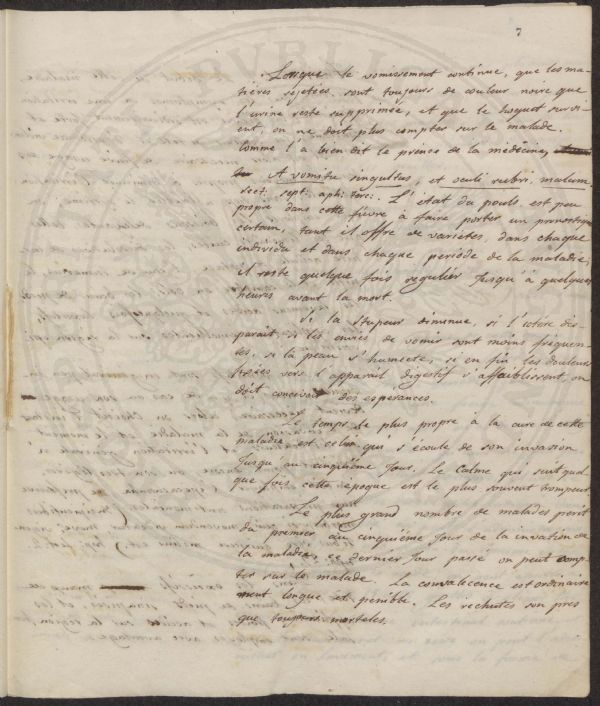 7
Lorsque le vomissement continue, que les ma-
tières rejetées sont toujours de couleur noire que
l'urine reste supprimée, et que le hoquet survi-
ent, on ne doit plus compter sur le malade.
Comme l'a bien dit le prince de la médecine,
A vomitu singultus, et oculi rubri, malum,
sect: sept: aph: terc: L'état du pouls, est peu
propre dans cette fièvre à faire porter un pronostique
certain, tant il offre de varietés, dans chaque
individu et dans chaque période de la maladie;
il reste quelque fois regulier Jusqu'à quelques
heures avant la mort.
Si la Stupeur diminue, si l'ictere dis-
parait, si les envies, de vomir sont moins fréquen-
tes, si la peau s'humecte, si en fin les douleurs
fixées vers l'apparail digestif s'affaiblissent, on
doit concevoir des esperances.
Le temps le plus propre à la cure de cette
maladie est celui qui s'écoule de son invasion
Jusqu'au cinquiéme Jour. Le Calme qui suit quel
que fois cette époque est le plus souvent trompeur.
Le plus grand nombre de malades perit
du premier au cinquiéme Jour de la invasion de
la maladie, ce dernier Jour passé on peut comp-
ter sur le malade. La convalecence est ordinaire
ment longue et penible. Les rechutes son pres
que toujours mortelles.